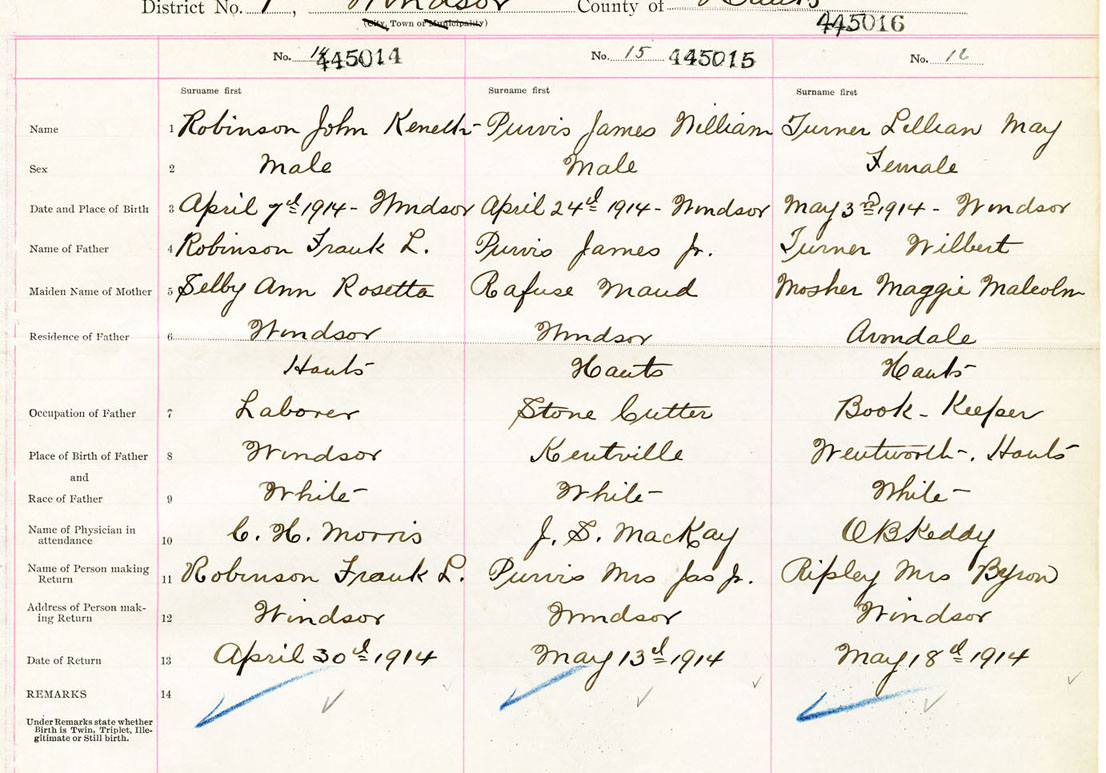 District No. 1, Windsor County of Hants
(City, Town or Municipality)
445016
No. 14 445014 No. 15 445015 No. 16
Surname first Surname first Surname first
Name 1 Robinson John Keneth Purvis James William Turner Lillian May
Sex 2 Male Male Female
Date and Place of Birth 3 April 7th 1914 - Windsor April 24th 1914 - Windsor May 3rd 1914 - Windsor
Name of Father 4 Robinson Frank L. Purvis James Jr. Turner Wilbert
Maiden Name of Mother 5 Selby Ann Rosetta Rafuse Maud Mosher Maggie Malcolm
Residence of Father 6 Windsor Windsor Avondale
Hants Hants Hants
Occupation of Father 7 Laborer Stone Cutter Book-Keeper
Place of Birth of Father 8 Windsor Kentville Wentworth-, Hants
and
Race of Father 9 White White White
Name of Physician in
attendance 10 C. H. Morris J. S. MacKay O B Keddy
Name of Person making
Return 11 Robinson Frank L. Purvis Mrs Jas Jr. Ripley Mrs Byron
Address of Person mak-
ing Return 12 Windsor Windsor Windsor
Date of Return 13 April 30th 1914 May 13th 1914 May 18th 1914
REMARKS 14
Under Remarks state whether
Birth is Twin, Triplet, Ille-
gitimate or Still birth.